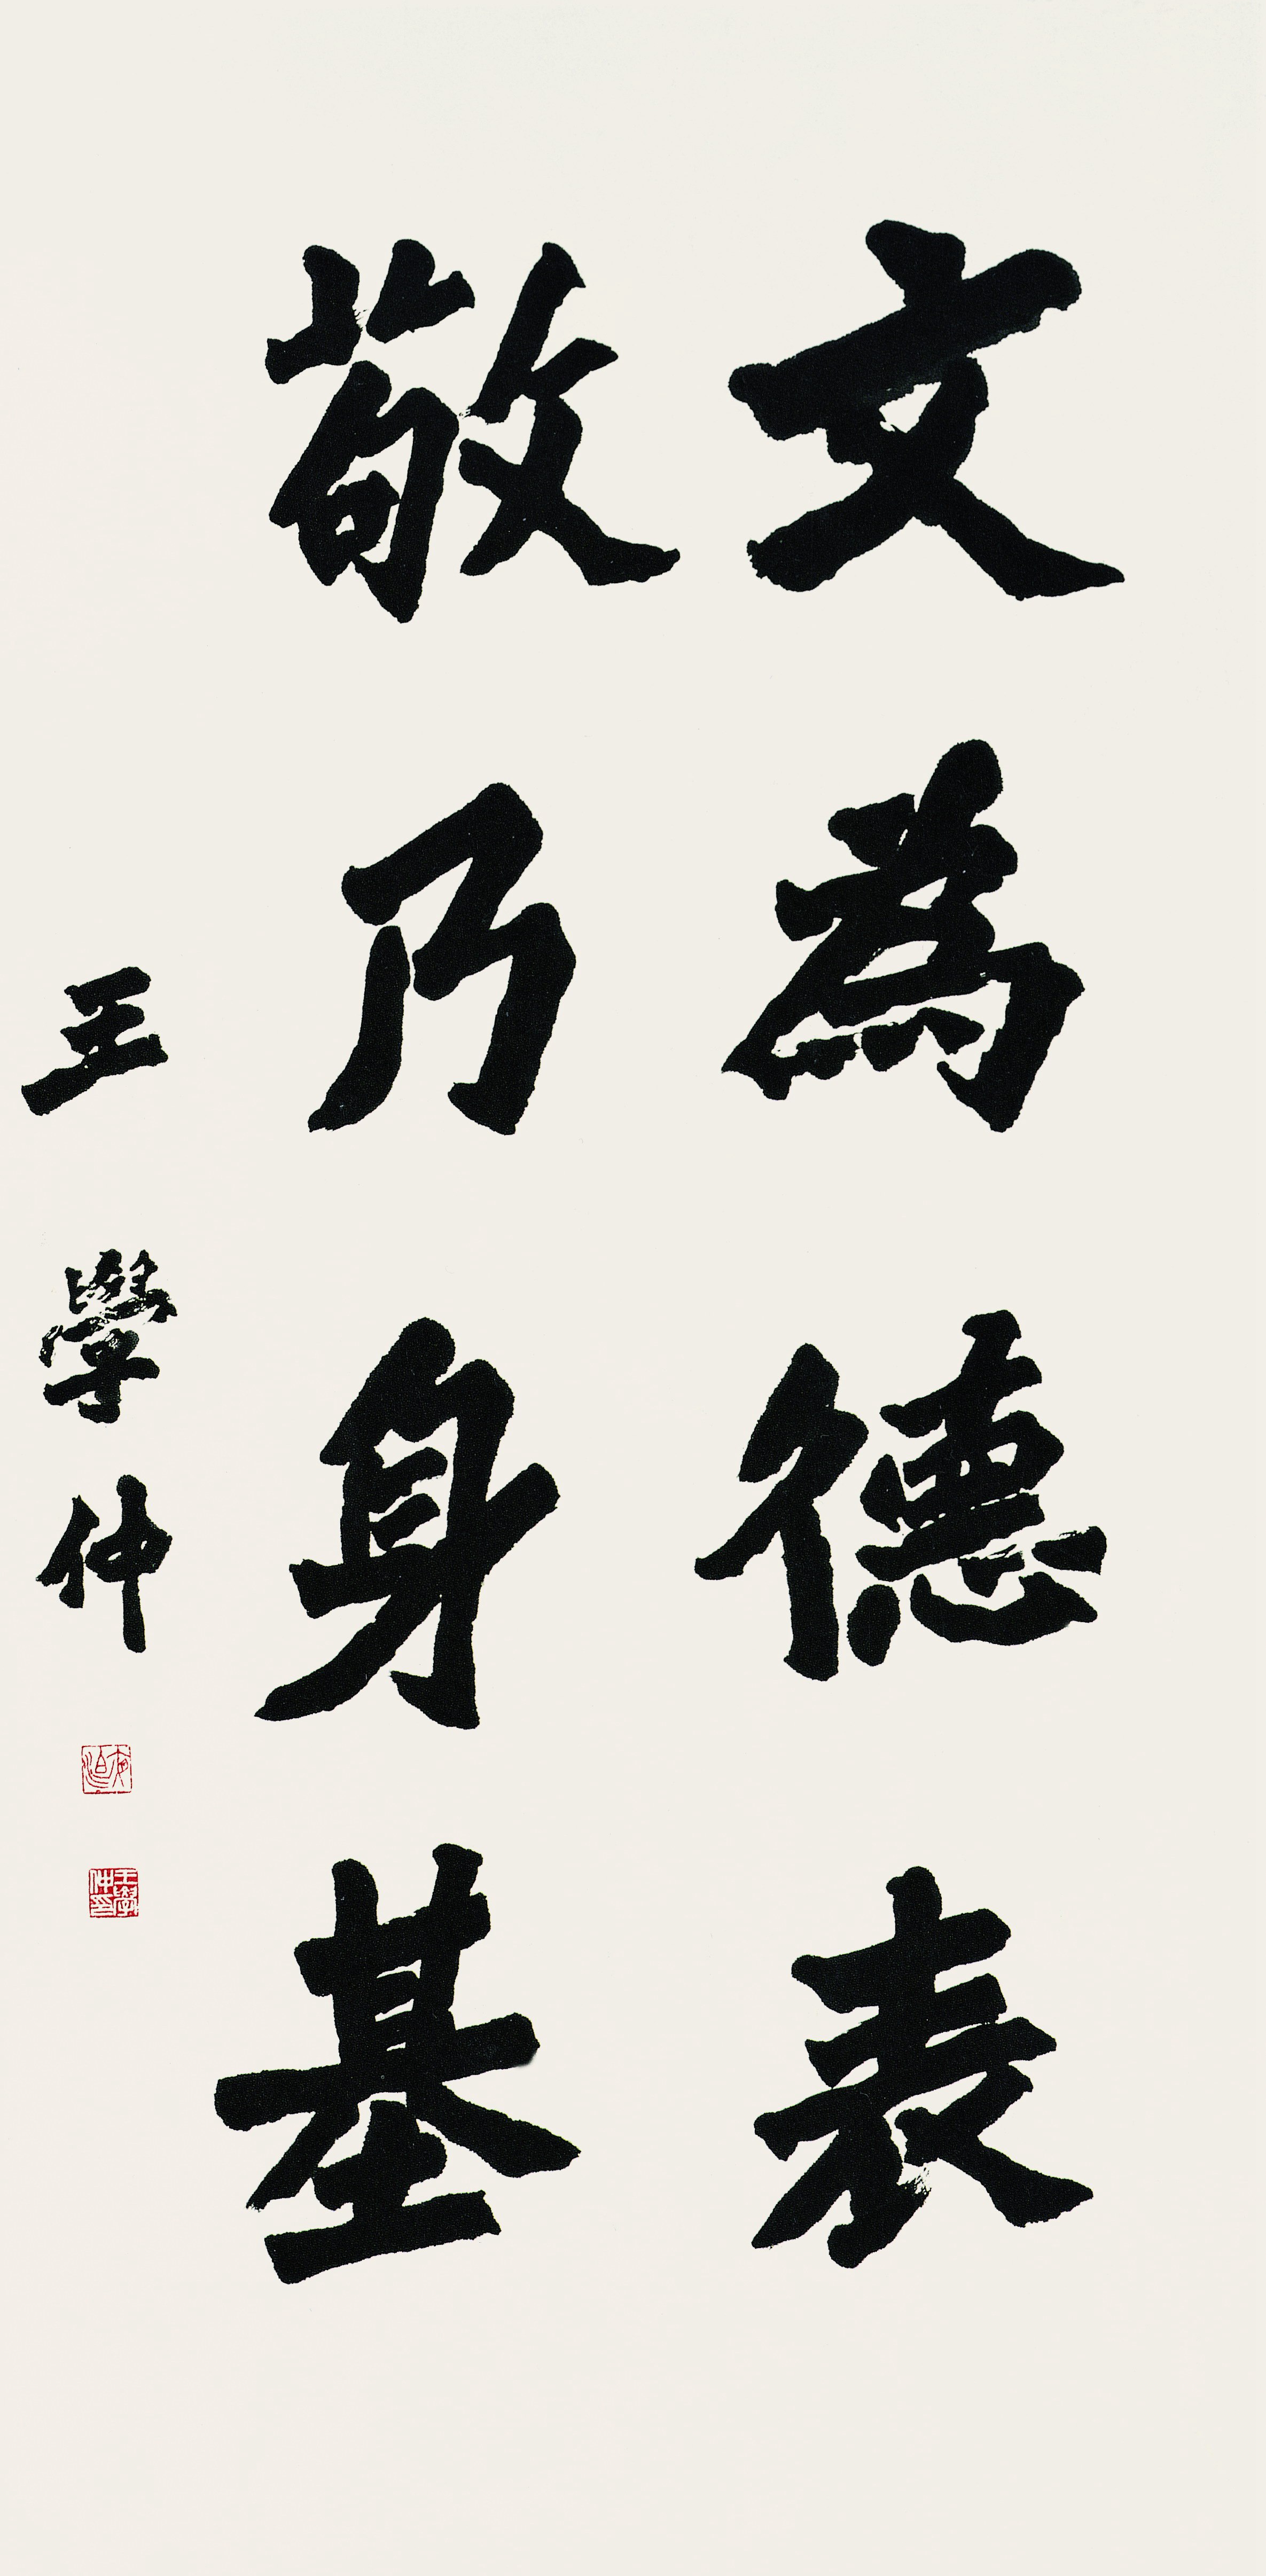 文為德表
敬乃身基
王學仲
王學仲印